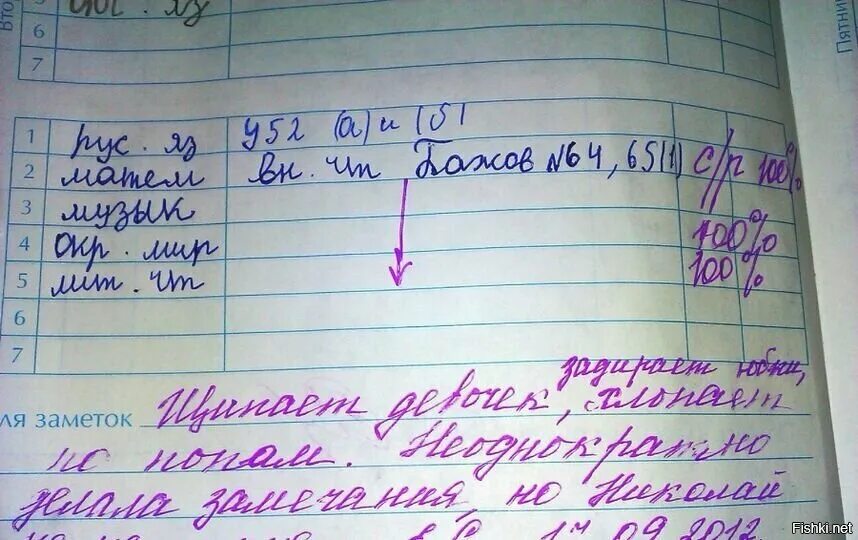 6
7
Вто
Пятни
1 рус. яз У52 (а) и 151
2 матем вн. чт Бажов №64, 65(1) с/р 100%
3 музык
4 окр. мир 100%
5 лит. чт 100%
6
7
задирает юбки,
ля заметок Щипает девочек, хлопает
по попам. Неоднократно
делала замечания, но Николай
17.09.2012
Fishki.net